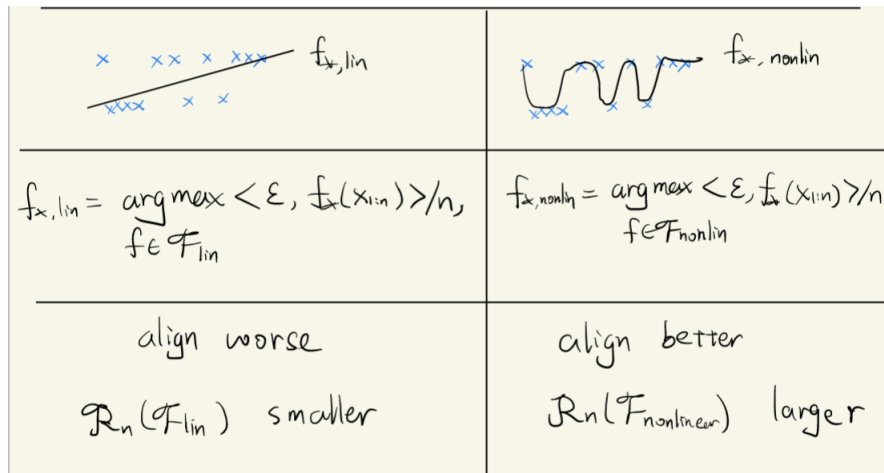 f_{*,lin}
f_{*,nonlin}
f_{*,lin} = argmax <ε, f_*(x_{1:n})>/n,
f∈ℱ_{lin}
f_{*,nonlin} = argmax <ε, f_*(x_{1:n})>/n
f∈ℱ_{nonlin}
align worse
ℛ_n(ℱ_{lin}) smaller
align better
ℛ_n(ℱ_{nonlinear}) larger